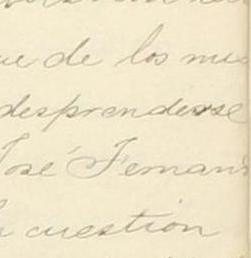 ue de los mu
desprenderse
José Fernan
cuestion